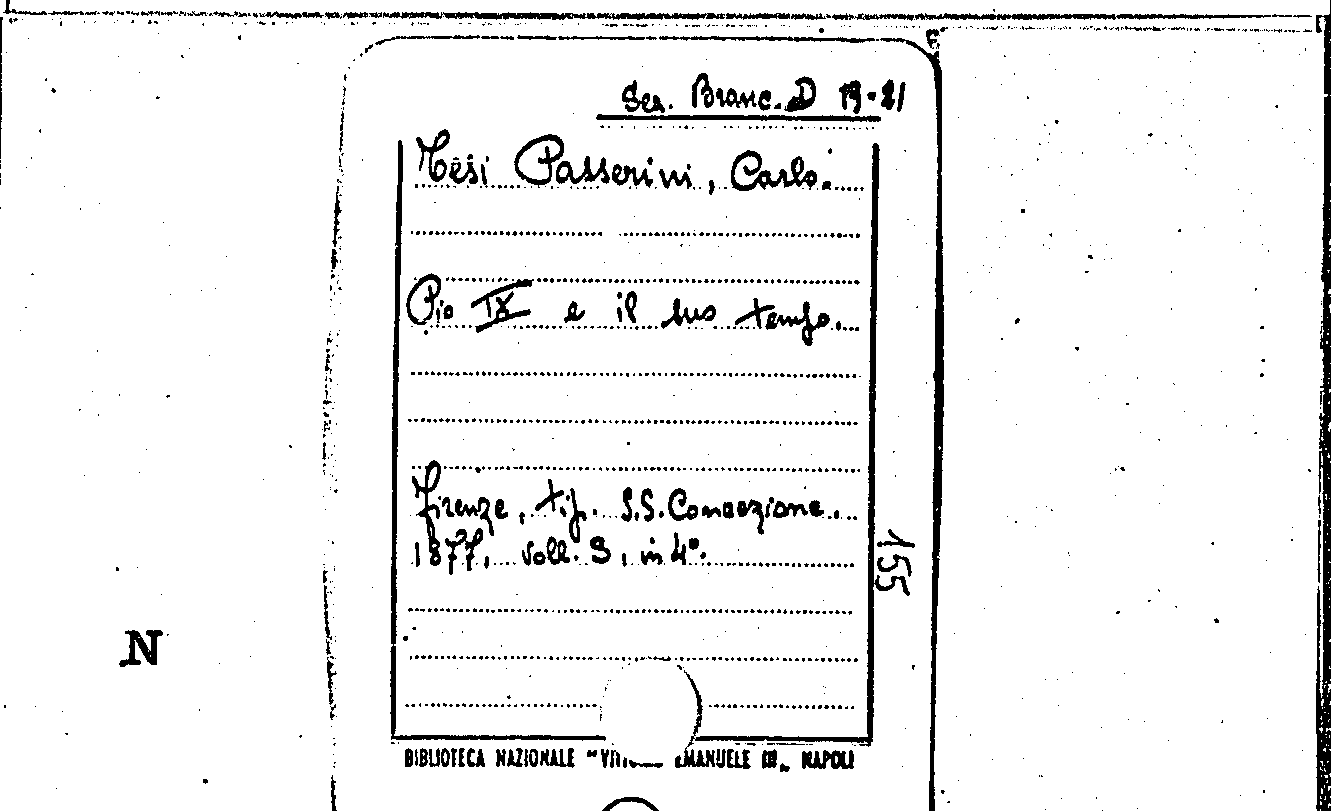 Sez. Branc. D 19-21
Tesi Passerini, Carlo.
Pio IX e il suo tempo.
Firenze, tip. S.S. Concezione.
1877, voll. 3, in 4°.
155
N
BIBLIOTECA NAZIONALE "VITT EMANUELE III„ NAPOLI